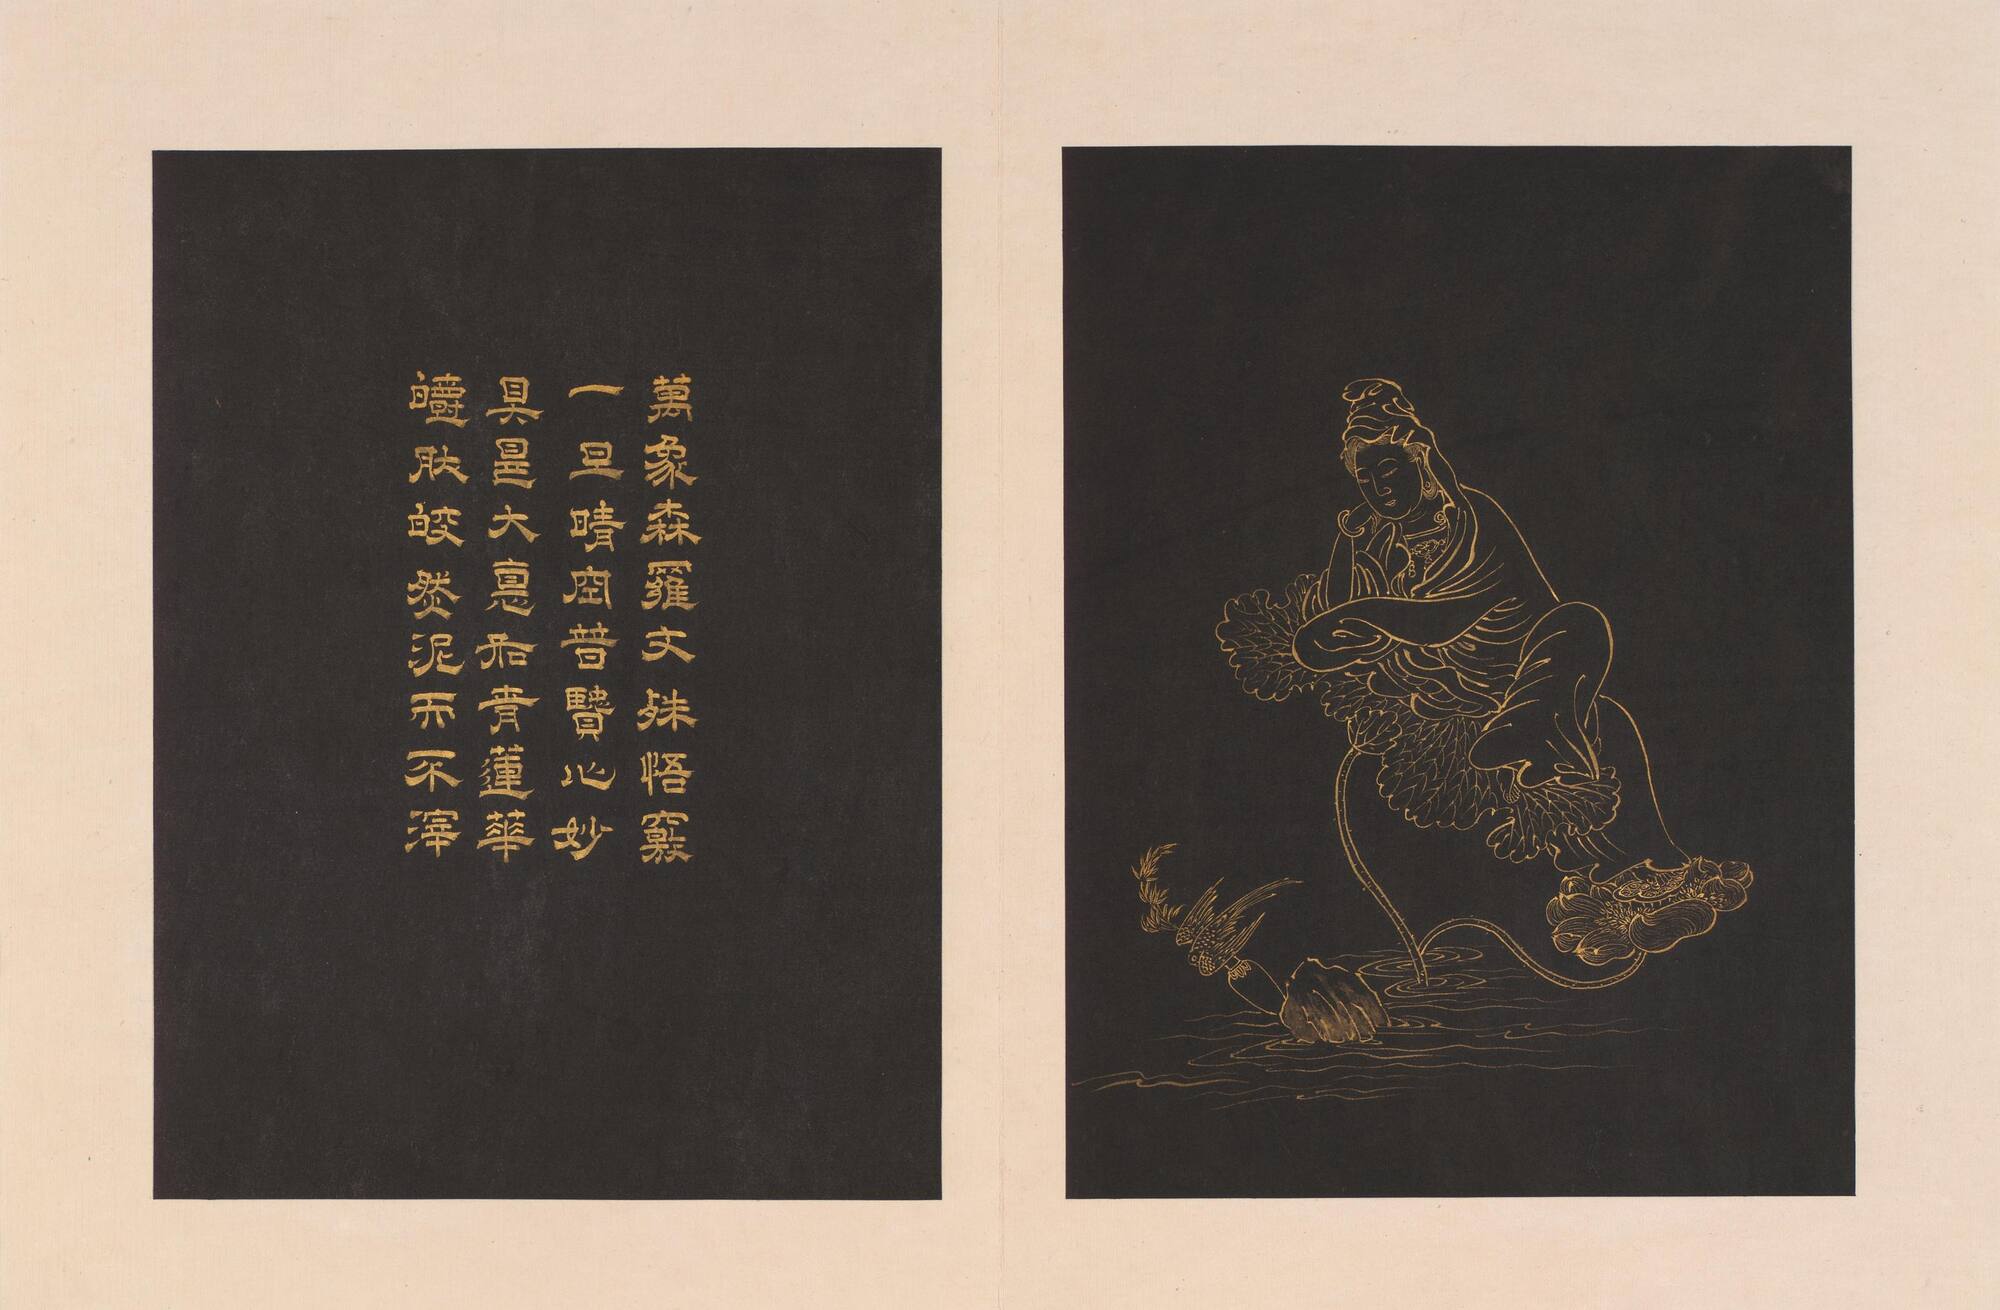 萬象森羅文殊悟竅
一旦晴空普賢心妙
具昰大悳如青蓮華
皭肰皎然泥而不滓